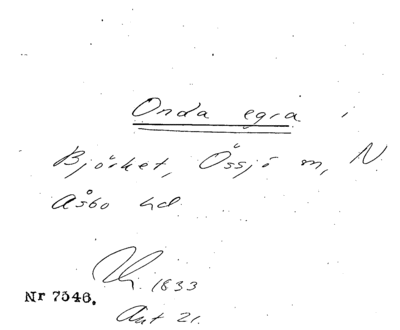 Onda egra i
Björket, Össjö m, N.
Åsbo hd.
1833
Nr 7546. Ant 21.